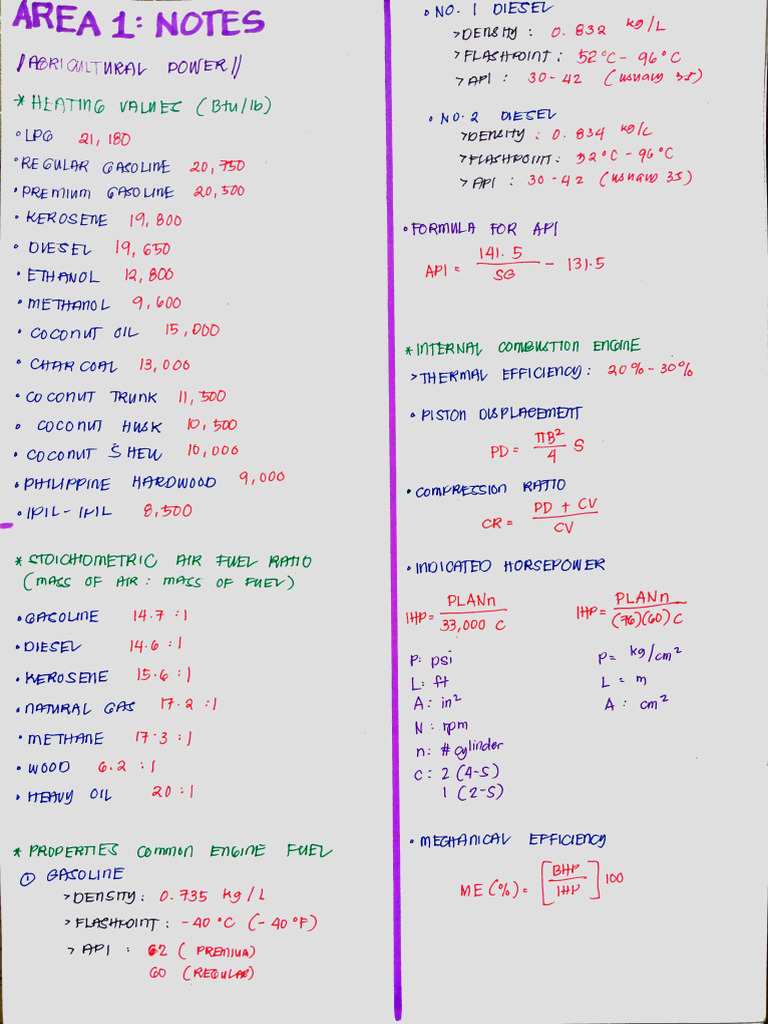 AREA 1: NOTES
//AGRICULTURAL POWER//
* HEATING VALUES (Btu/lb)
• LPG 21,180
• REGULAR GASOLINE 20,750
• PREMIUM GASOLINE 20,500
• KEROSENE 19,800
• DIESEL 19,650
• ETHANOL 12,800
• METHANOL 9,600
• COCONUT OIL 15,000
• CHARCOAL 13,000
• COCONUT TRUNK 11,500
• COCONUT HUSK 10,500
• COCONUT SHELL 10,000
• PHILIPPINE HARDWOOD 9,000
• IPIL-IPIL 8,500
* STOICHIOMETRIC AIR FUEL RATIO
(MASS OF AIR : MASS OF FUEL)
• GASOLINE 14.7 :1
• DIESEL 14.6 :1
• KEROSENE 15.6 :1
• NATURAL GAS 17.2 :1
• METHANE 17.3 :1
• WOOD 6.2 :1
• HEAVY OIL 20 :1
* PROPERTIES COMMON ENGINE FUEL
① GASOLINE
> DENSITY: 0.735 kg/L
> FLASHPOINT: -40 °C (-40 °F)
> API : 62 (PREMIUM)
60 (REGULAR)
• NO. 1 DIESEL
> DENSITY: 0.832 kg/L
> FLASHPOINT: 52°C - 96°C
> API : 30-42 (usually 35)
• NO. 2 DIESEL
> DENSITY : 0.834 kg/L
> FLASHPOINT: 52°C - 96°C
> API : 30-42 (usually 35)
• FORMULA FOR API
API = 141.5 / SG - 131.5
* INTERNAL COMBUSTION ENGINE
> THERMAL EFFICIENCY: 20% - 30%
• PISTON DISPLACEMENT
PD = πB² / 4 S
• COMPRESSION RATIO
CR = PD + CV / CV
• INDICATED HORSEPOWER
IHP = PLANn / 33,000 C IHP = PLANn / (76)(60) C
P: psi P= kg/cm²
L: ft L = m
A: in² A : cm²
N: rpm
n: # cylinder
C: 2 (4-S)
1 (2-S)
• MECHANICAL EFFICIENCY
ME (%) = [BHP / IHP] 100